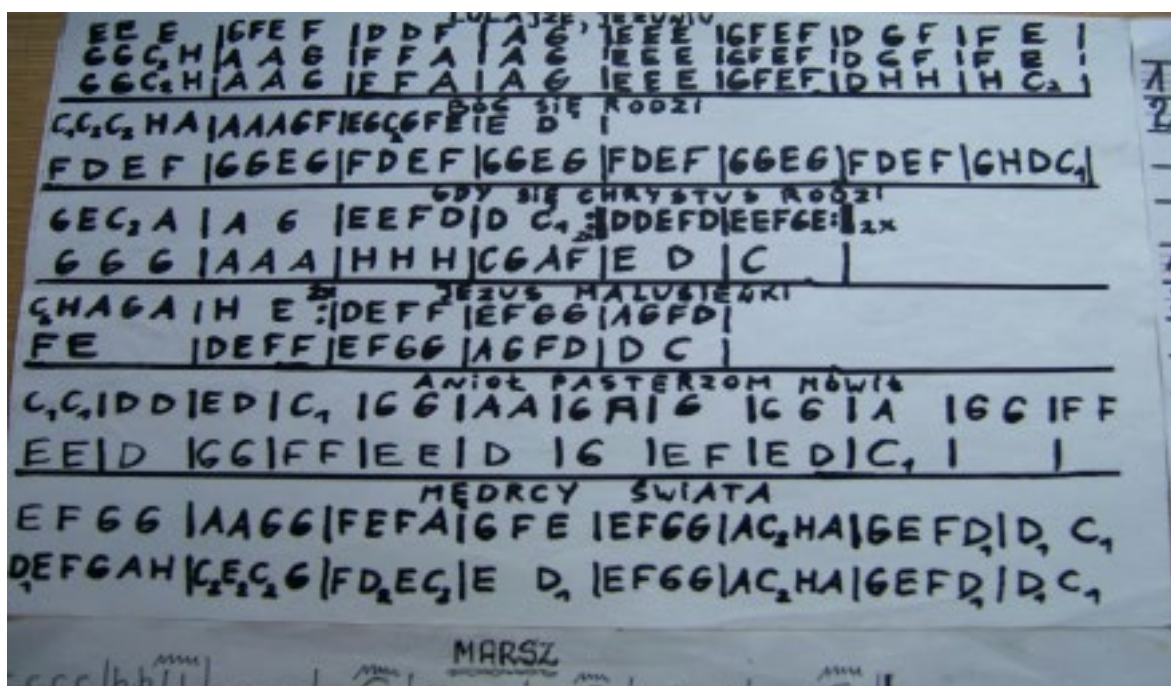 LULAJŻE, JEZUNIU
EEE |GFEF |DDF |AG |EEE |GFEF |DGF |FE |
GGC₂H |AAG |FFA |AG |EEE |GFEF |DGF |FE |
GGC₂H |AAG |FFA |AG |EEE |GFEF |DHH |HC₂ |
BÓG SIĘ RODZI
C₁C₂C₂HA|AAAGF|EGC₂GFE|E D |
FDEF |GGEG|FDEF|GGEG|FDEF|GGEG|FDEF|GHDC₁|
GDY SIĘ CHRYSTUS RODZI
GEC₂A |A G |EEFD|D C₁ :|DDEFD|EEFGE:|2x
GGG |AAA |HHH |CGAF|E D |C |
JEZUS MALUSIEŃKI
C₂HAGA |H E 2x :|DEFF |EFGG |AGFD|
FE |DEFF |EFGG |AGFD |D C |
ANIOŁ PASTERZOM MÓWIŁ
C₁C₁|DD|ED|C₁ |GG|AA|GA|G |GG|A |GG|FF
EE|D |GG|FF|EE|D |G |EF|ED|C₁ | |
MĘDRCY ŚWIATA
EFGG |AAGG|FEFA|GFE |EFGG|AC₂HA|GEFD₁|D₁ C₁
D₁EFGAH |C₂E₂C₂G |FD₂EC₂|E D₁ |EFGG|AC₂HA|GEFD₁|D₁ C₁
MARSZ